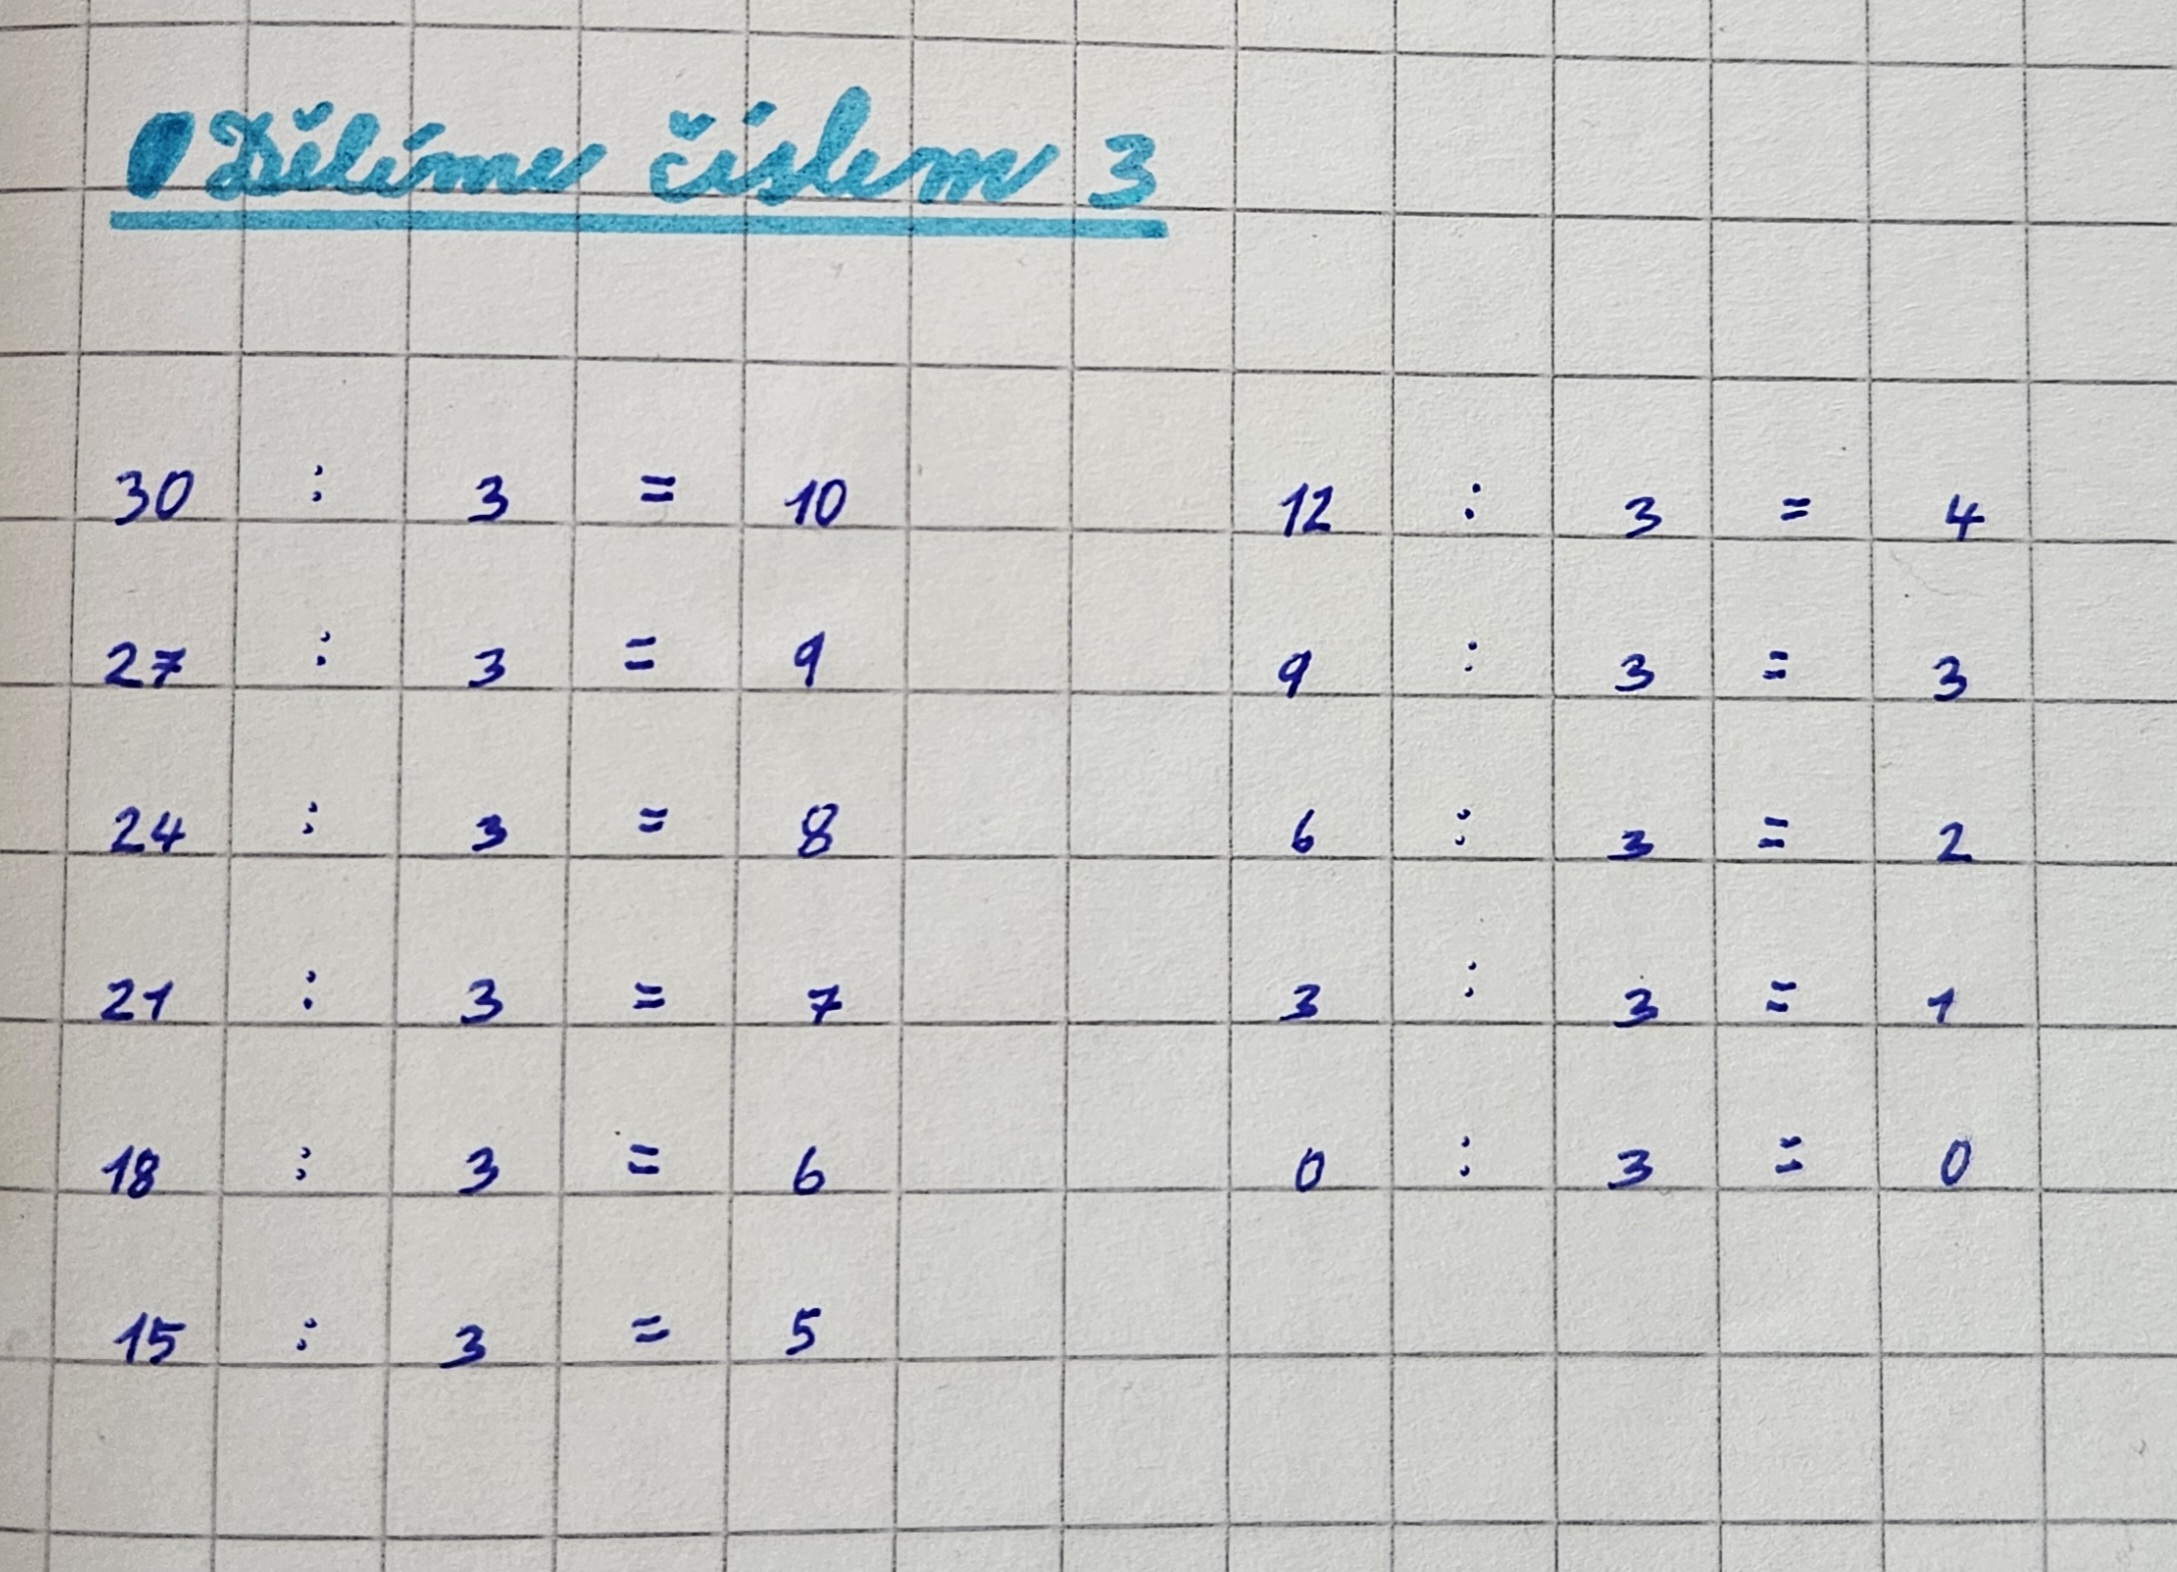 Dělíme číslem 3
30 : 3 = 10
27 : 3 = 9
24 : 3 = 8
21 : 3 = 7
18 : 3 = 6
15 : 3 = 5
12 : 3 = 4
9 : 3 = 3
6 : 3 = 2
3 : 3 = 1
0 : 3 = 0